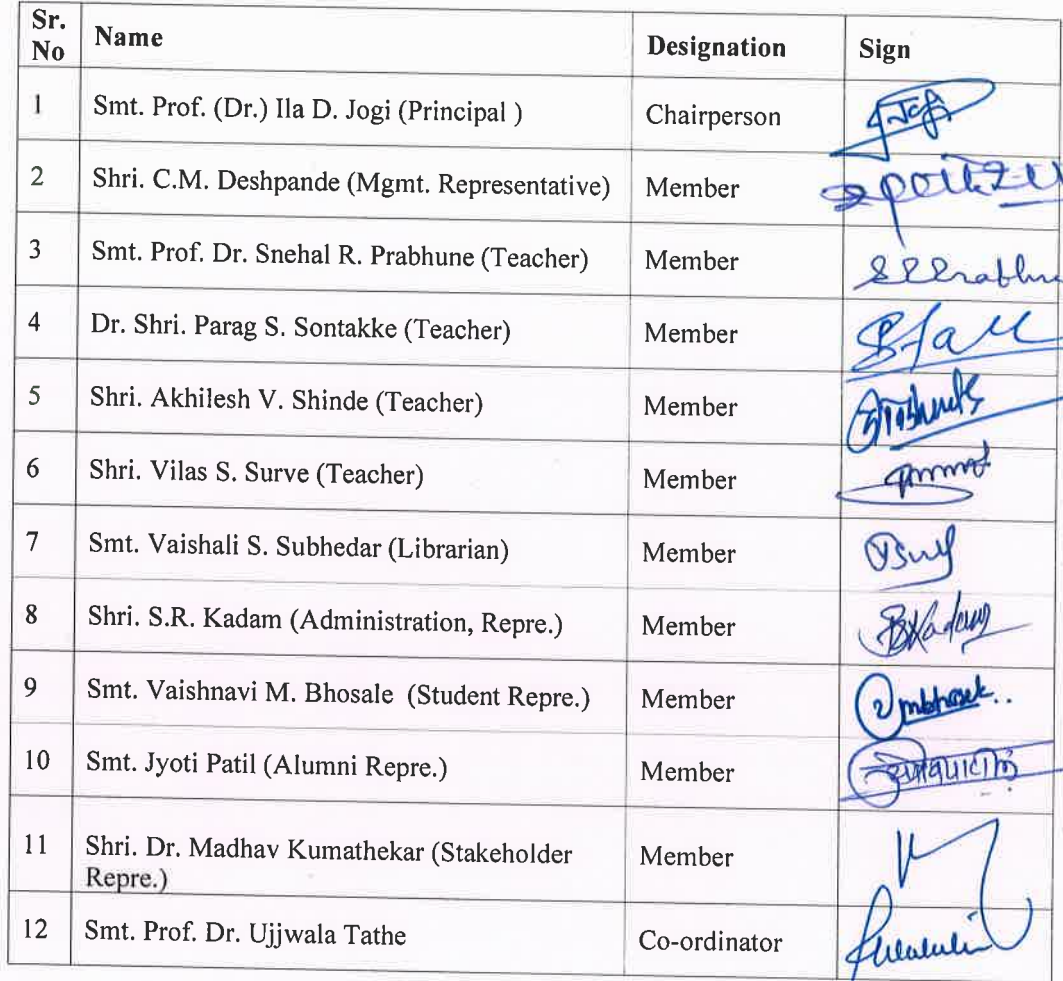 Sr. No Name Designation Sign
1 Smt. Prof. (Dr.) Ila D. Jogi (Principal ) Chairperson
2 Shri. C.M. Deshpande (Mgmt. Representative) Member
3 Smt. Prof. Dr. Snehal R. Prabhune (Teacher) Member
4 Dr. Shri. Parag S. Sontakke (Teacher) Member
5 Shri. Akhilesh V. Shinde (Teacher) Member
6 Shri. Vilas S. Surve (Teacher) Member
7 Smt. Vaishali S. Subhedar (Librarian) Member
8 Shri. S.R. Kadam (Administration, Repre.) Member
9 Smt. Vaishnavi M. Bhosale (Student Repre.) Member
10 Smt. Jyoti Patil (Alumni Repre.) Member
11 Shri. Dr. Madhav Kumathekar (Stakeholder Member
Repre.)
12 Smt. Prof. Dr. Ujjwala Tathe Co-ordinator